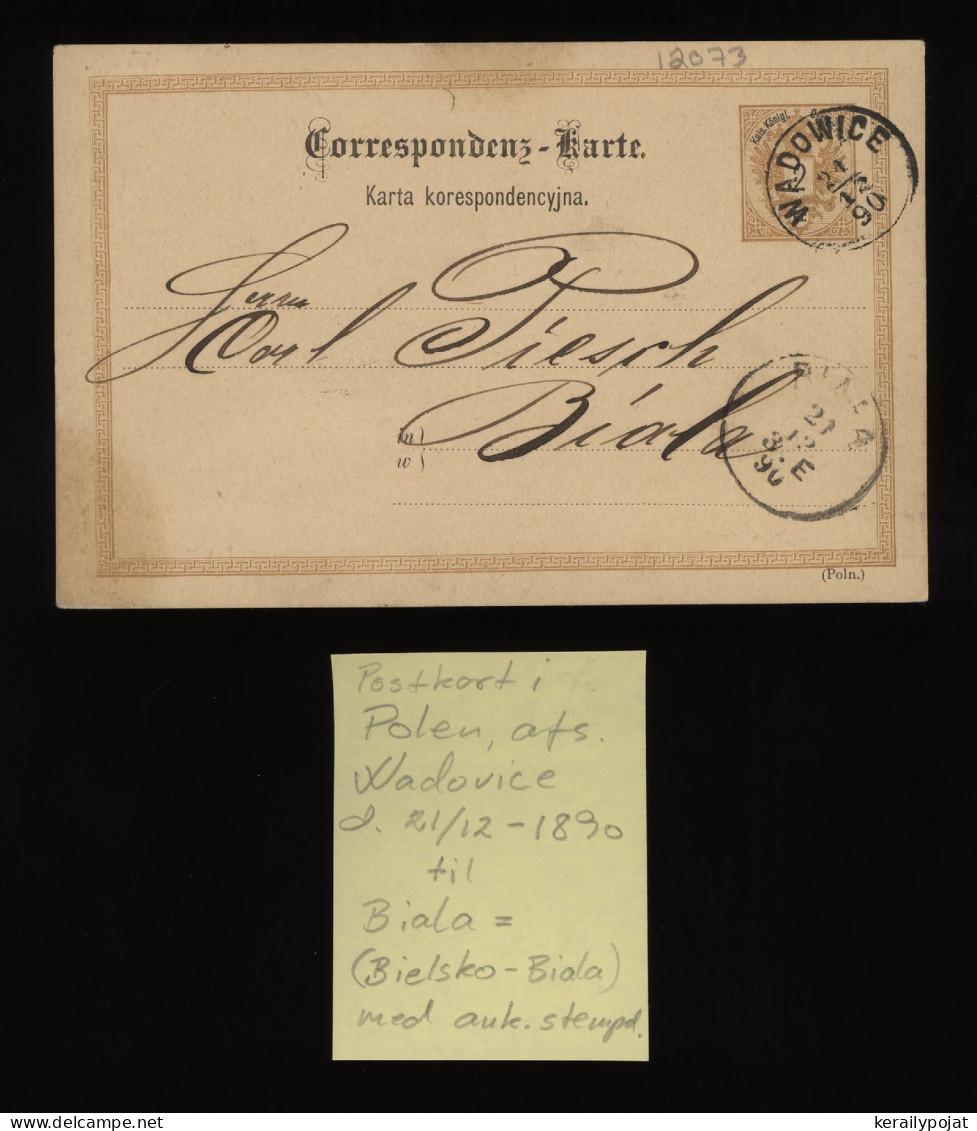 12073
Correspondenz-Karte.
Karta korespondencyjna.
Kais. Königl.
WADOWICE
21/12
90
Herrn
Carl Piesch
Biala
w
BIALA
21
12
90
(Poln.)
Postkort i
Polen, afs.
Wadovice
d. 21/12-1890
til
Biala =
(Bielsko-Biala)
med ank. stempel.
www.kerailypojat.com